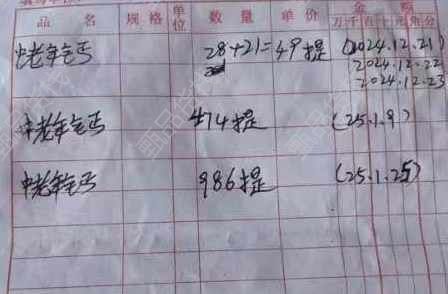 品 名 规 格 单位 数 量 单 价 金 额
万 千 百 十 元 角 分
中老年钙 28+21=49提 (2024.12.21)
2024.12.22
2024.12.23
中老年钙 474提 (25.1.9)
中老年钙 986提 (25.1.25)